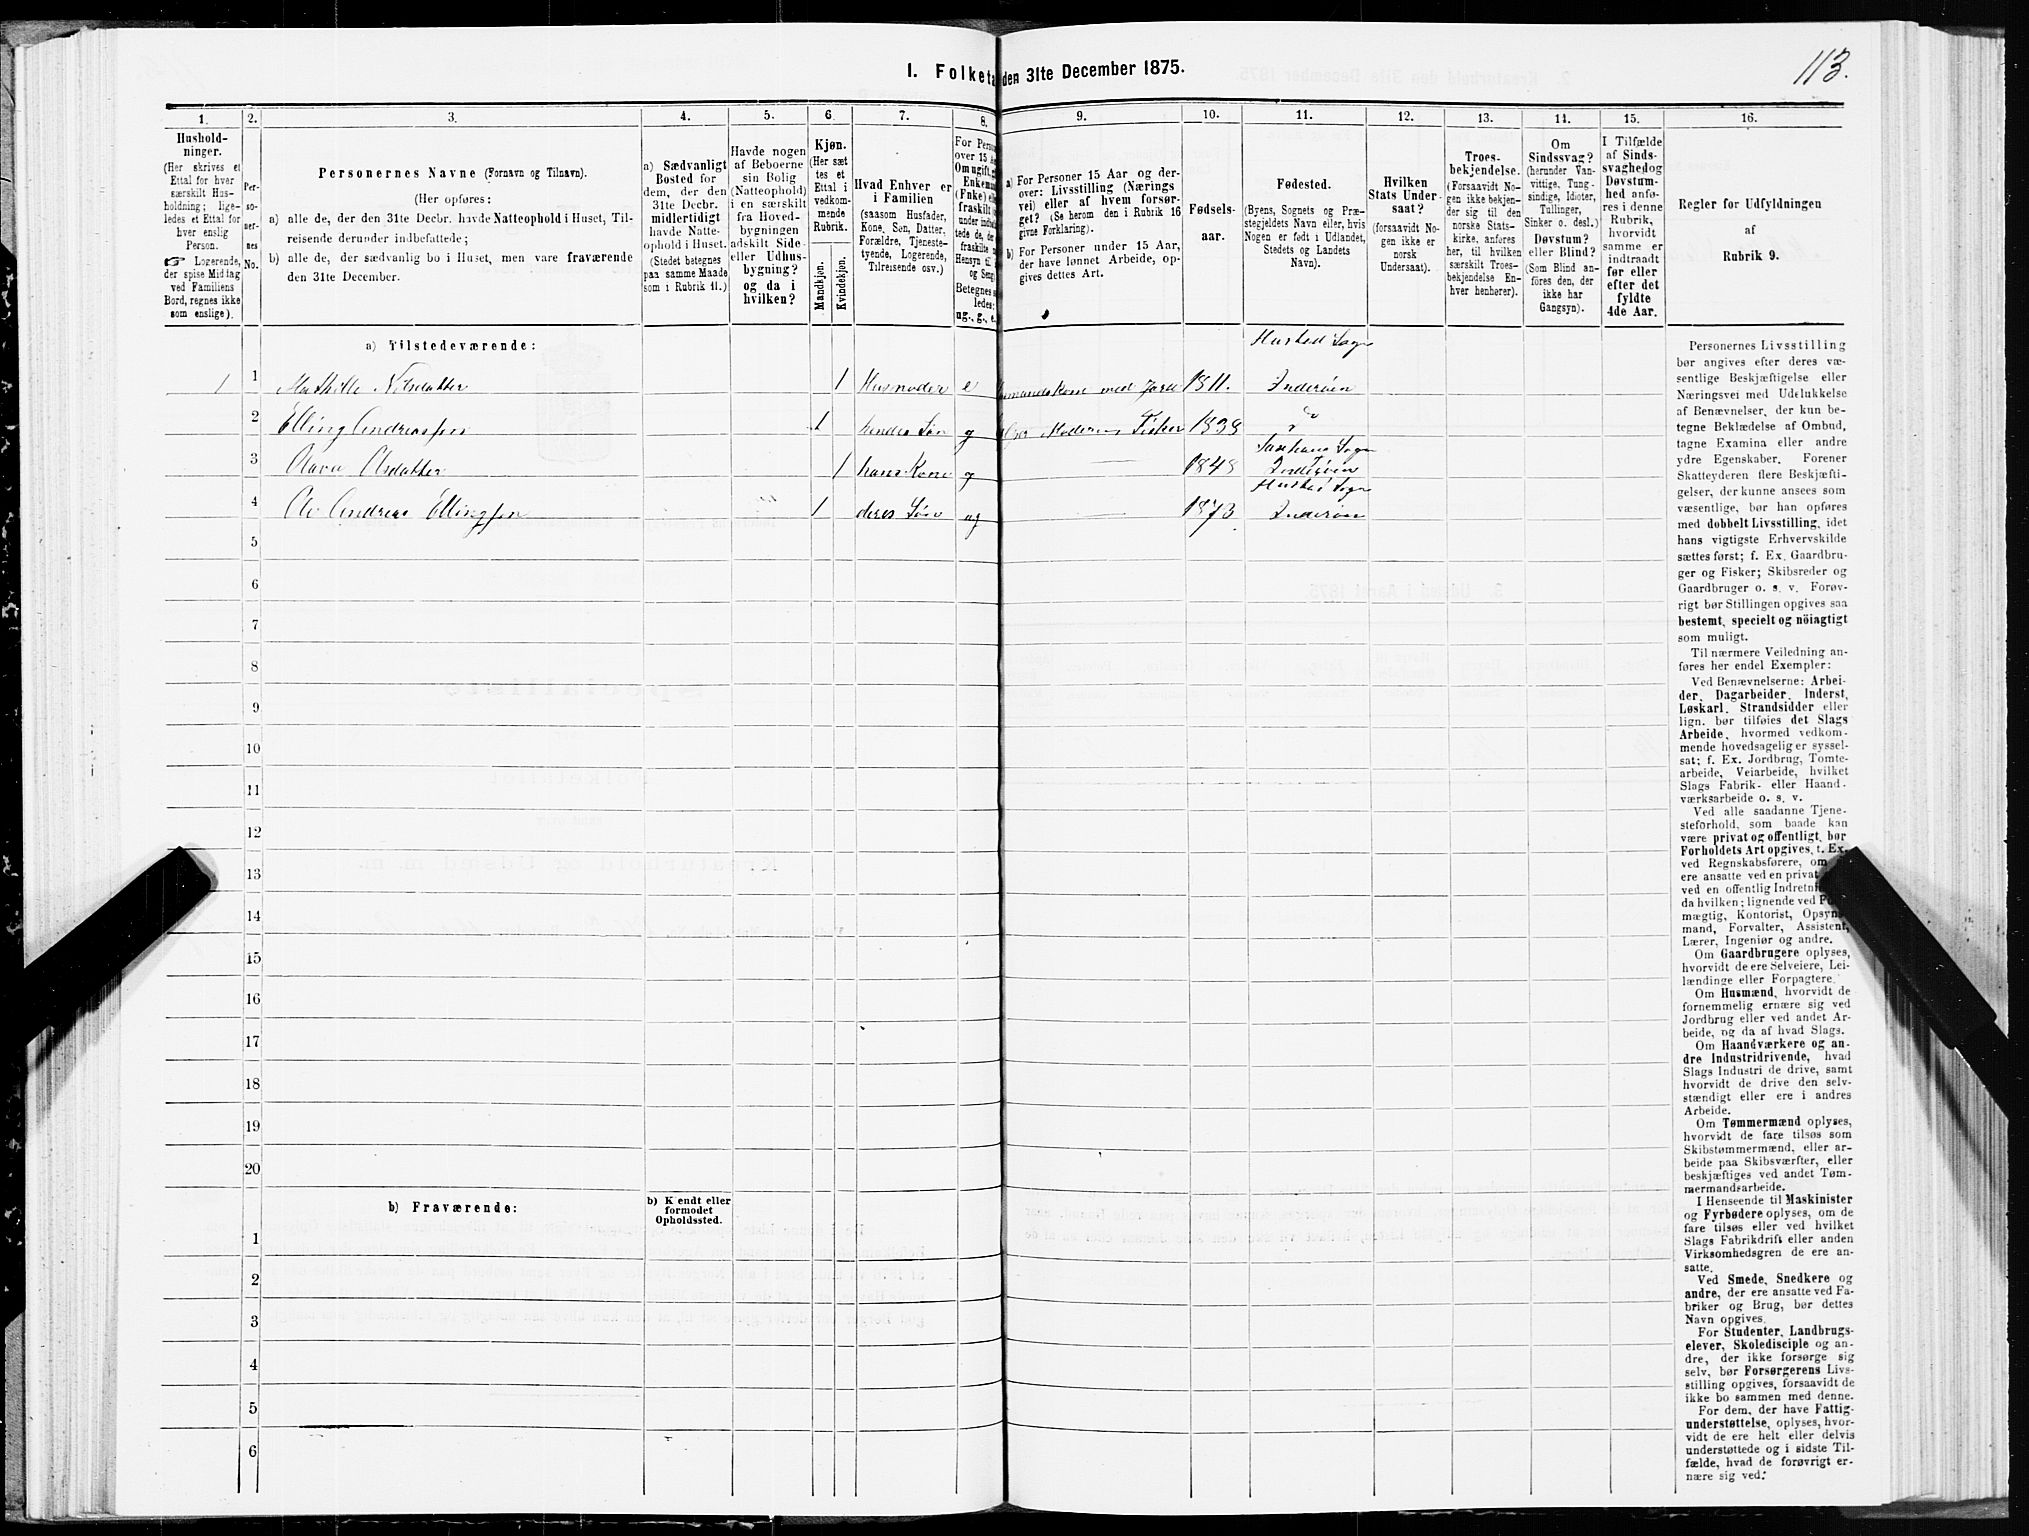 113.
1. Folketæ den 31te December 1875.
1. 2. 3. 4. 5. 6. 7. 8. 9. 10. 11. 12. 13. 14. 15. 16.
Hushold-
ninger.
(Her skrives et
Ettal for hver
særskilt Hus-
holdning; lige-
ledes et Ettal for
hver enslig
Person.
☞ Logerende,
der spise Middag
ved Familiens
Bord, regnes ikke
som enslige).
Per-
so-
ner-
nes
No.
Personernes Navne (Fornavn og Tilnavn).
(Her opføres:
a) alle de, der den 31te Decbr. havde Natteophold i Huset, Til-
reisende derunder indbefattede;
b) alle de, der sædvanlig bo i Huset, men vare fraværende
den 31te December.
a) Sædvanligt
Bosted for
dem, der den
31te Decbr.
midlertidigt
havde Natte-
ophold i Huset.
(Stedet betegnes
paa samme Maade
som i Rubrik 11.)
Havde nogen
af Beboerne
sin Bolig
(Natteophold)
i en særskilt
fra Hoved-
bygningen
adskilt Side-
eller Udhus-
bygning?
og da i
hvilken?
Kjøn.
(Her sæt
tes et
Ettal i
vedkom-
mende
Rubrik.
Mandkjøn.
Kvindekjøn.
Hvad Enhver er
i Familien
(saasom Husfader,
Kone, Søn, Datter,
Forældre, Tjeneste-
tyende, Logerende,
Tilreisende osv.)
For Person
over 15 A
Om ugift, g
Enkem
(Fnke) el
fraskilt
under indbe
tede de, der
fraskilte
Hensyn til
og Seng
Betegnes
ledes:
ug., g., e.
a) For Personer 15 Aar og der-
over: Livsstilling (Nærings
vei) eller af hvem forsør-
get? (Se herom den i Rubrik 16
givne Forklaring).
b) For Personer under 15 Aar,
der have lønnet Arbeide, op-
gives dettes Art.
Fødsels-
aar.
Fødested.
(Byens, Sognets og Præ-
stegjeldets Navn eller, hvis
Nogen er født i Udlandet,
Stedets og Landets
Navn).
Hvilken
Stats Under
saat?
(forsaavidt No-
gen ikke er
norsk
Undersaat).
Troes-
bekjendelse.
(Forsaavidt No-
gen ikke bekjen-
der sig til den
norske Stats-
kirke, anføres
her, til hvilken
særskilt Troes-
bekjendelse En-
hver henhører).
Om
Sindssvag?
(herunder Van-
vittige, Tung-
sindige, Idioter,
Tullinger,
Sinker o. desl.)
Døvstum?
eller Blind?
(Som Blind an-
føres den, der
ikke har
Gangsyn).
I Tilfælde
af Sinds-
svaghed og
Døvstum-
hed anfø-
res i denne
Rubrik,
hvorvidt
samme er
indtraadt
før eller
efter det
fyldte
4de Aar.
Regler for Udfyldningen
af
Rubrik 9.
a) Tilstedeværende:
Hustad Sogn
1 1 Mathille Nilsdatter 1 Husmoder e mands Kone med Jord 1811. Inderøen
2 Elling Andreassen 1 hendes Søn g Moderen Fisker 1838
Sogn
3 Olsdatter 1 hans Kone g 1848 Inderøen
Hustad Sogn
4 Ole Andreas Ellingsen 1 deres Søn ug 1873 Inderøen
5
6
7
8
9
10
11
12
13
14
15
16
17
18
19
20
b) Fraværende: b) Kjendt eller
formodet
Opholdssted.
1
2
3
4
5
6
Personernes Livsstilling
bør angives efter deres væ-
sentlige Beskjæftigelse eller
Næringsvei med Udelukkelse
af Benævnelser, der kun be-
tegne Bekladelse af Ombud,
tagne Examina eller andre
ydre Egenskaber. Forener
Skatteyderen flere Beskjæfti-
gelser, der kunne ansees som
væsentlige, bør han opføres
med dobbelt Livsstilling, idet
hans vigtigste Erhvervskilde
sættes først; f. Ex. Gaardbru-
ger og Fisker; Skibsreder og
Gaardbruger o. s. v. Forøv-
rigt bør Stillingen opgives saa
bestemt, specielt og nøiagtigt
som muligt.
Til nærmere Veiledning an-
føres her endel Exempler:
Ved Benævnelserne: Arbei-
der, Dagarbeider, Inderst,
Løskarl, Strandsidder eller
lign. bør tilføies det Slags
Arbeide, hvormed vedkom-
mende hovedsagelig er syssel-
sat; f. Ex. Jordbrug, Tomte-
arbeide, Veiarbeide, hvilket
Slags Fabrik- eller Haand-
værksarbeide o. s. v.
Ved alle saadanne Tjene-
steforhold, som baade kan
være privat og offentligt, bør
Forholdets Art opgives, f. Ex.
ved Regnskabsførere, om
ere ansatte ved en privat
ved en offentlig Indretn
da hvilken; lignende ved F
mægtig, Kontorist, Opsyns-
mand, Forvalter, Assistent,
Lærer, Ingeniør og andre.
Om Gaardbrugere oplyses,
hvorvidt de ere Selveiere, Lei-
lændinge eller Forpagtere.
Om Husmænd, hvorvidt de
fornemmelig ernære sig ved
Jordbrug eller ved andet Ar-
beide, og da af hvad Slags.
Om Haandværkere og an-
dre Industridrivende, hvad
Slags Industri de drive, samt
hvorvidt de drive den selv-
stændigt eller ere i andres
Arbeide.
Om Tømmermænd oplyses,
hvorvidt de fare tilsøs som
Skibstømmermænd, eller ar-
beide paa Skibsværfter, eller
beskjæftiges ved andet Tøm-
mermandsarbeide.
I Henseende til Maskinister
og Fyrbødere oplyses, om de
fare tilsøs eller ved hvilket
Slags Fabrikdrift eller anden
Virksomhedsgren de ere an-
satte.
Ved Smede, Snedkere og
andre, der ere ansatte ved Fa-
briker og Brug, bør dettes
Navn opgives.
For Studenter, Landbrugs-
elever, Skoledisciple og an-
dre, der ikke forsørge sig
selv, bør Forsørgerens Livs-
stilling opgives, forsaavidt de
ikke bo sammen med denne.
For dem, der have Fattig-
understøttelse, oplyses, hvor-
vidt de ere helt eller delvis
understøttede og i sidste Til-
fælde, hvad de forøvrigt er-
nære sig ved.